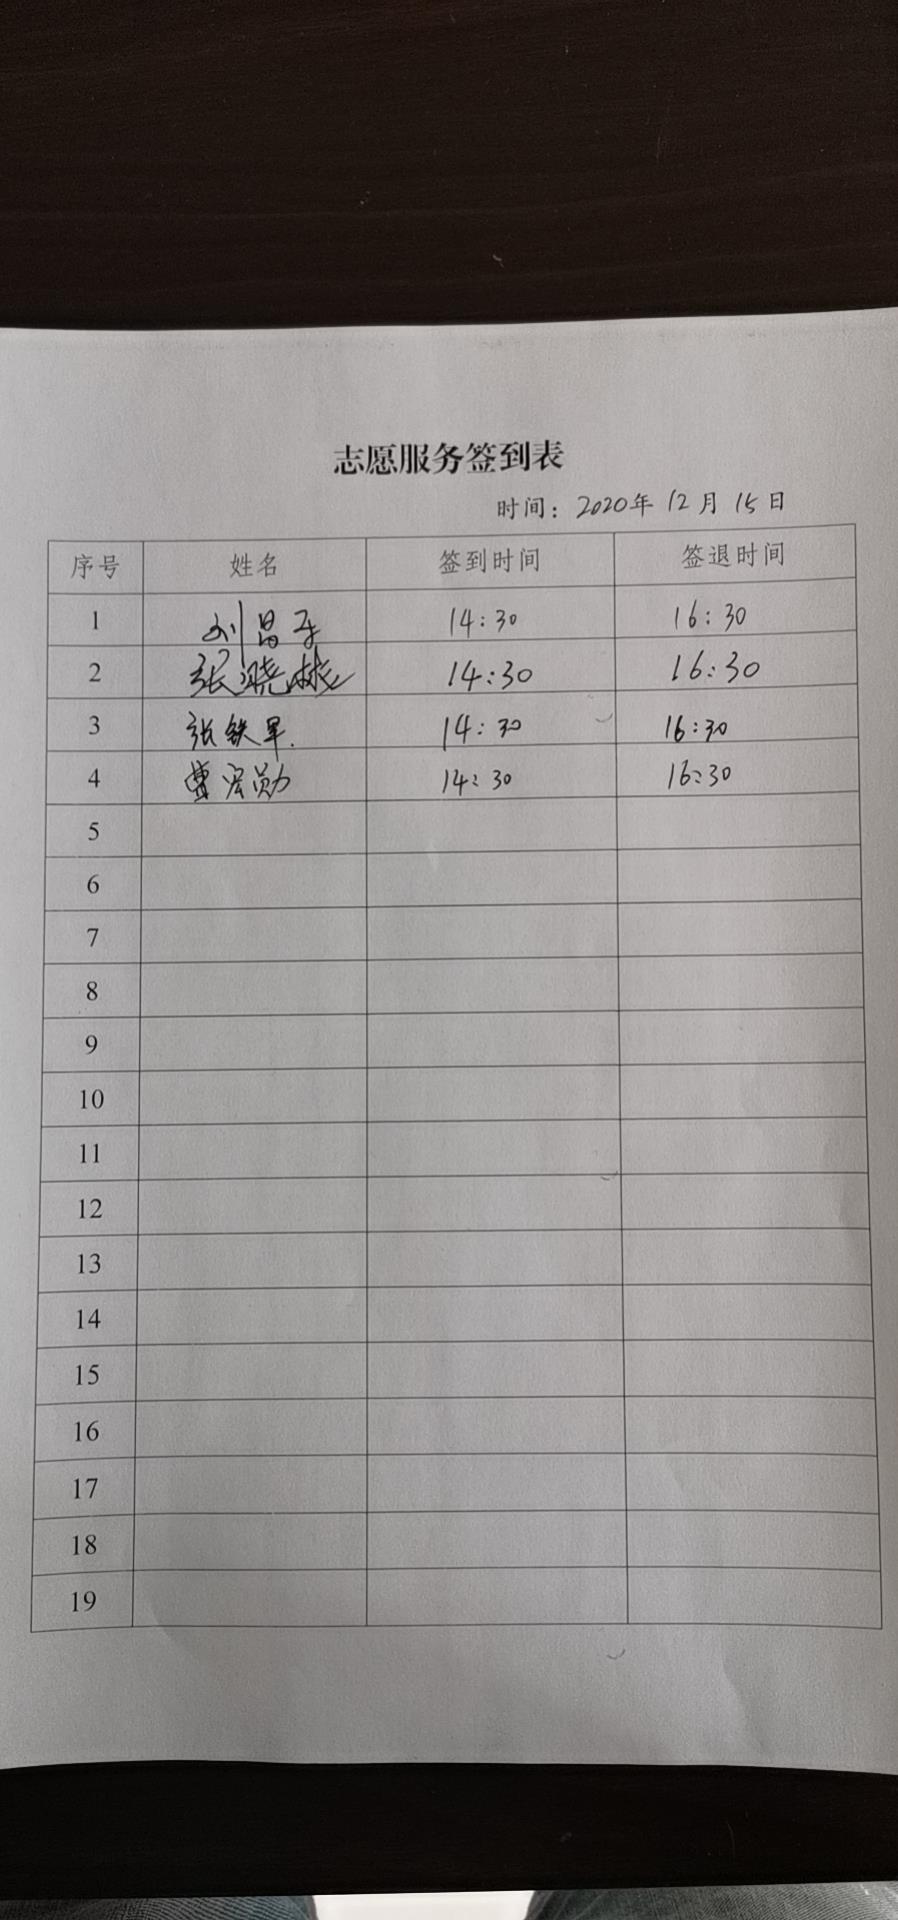 志愿服务签到表
时间：2020年12月15日
序号 姓名 签到时间 签退时间
1 刘昌平 14:30 16:30
2 张晓彬 14:30 16:30
3 张铁军. 14:30 16:30
4 曹宏勋 14:30 16:30
5
6
7
8
9
10
11
12
13
14
15
16
17
18
19